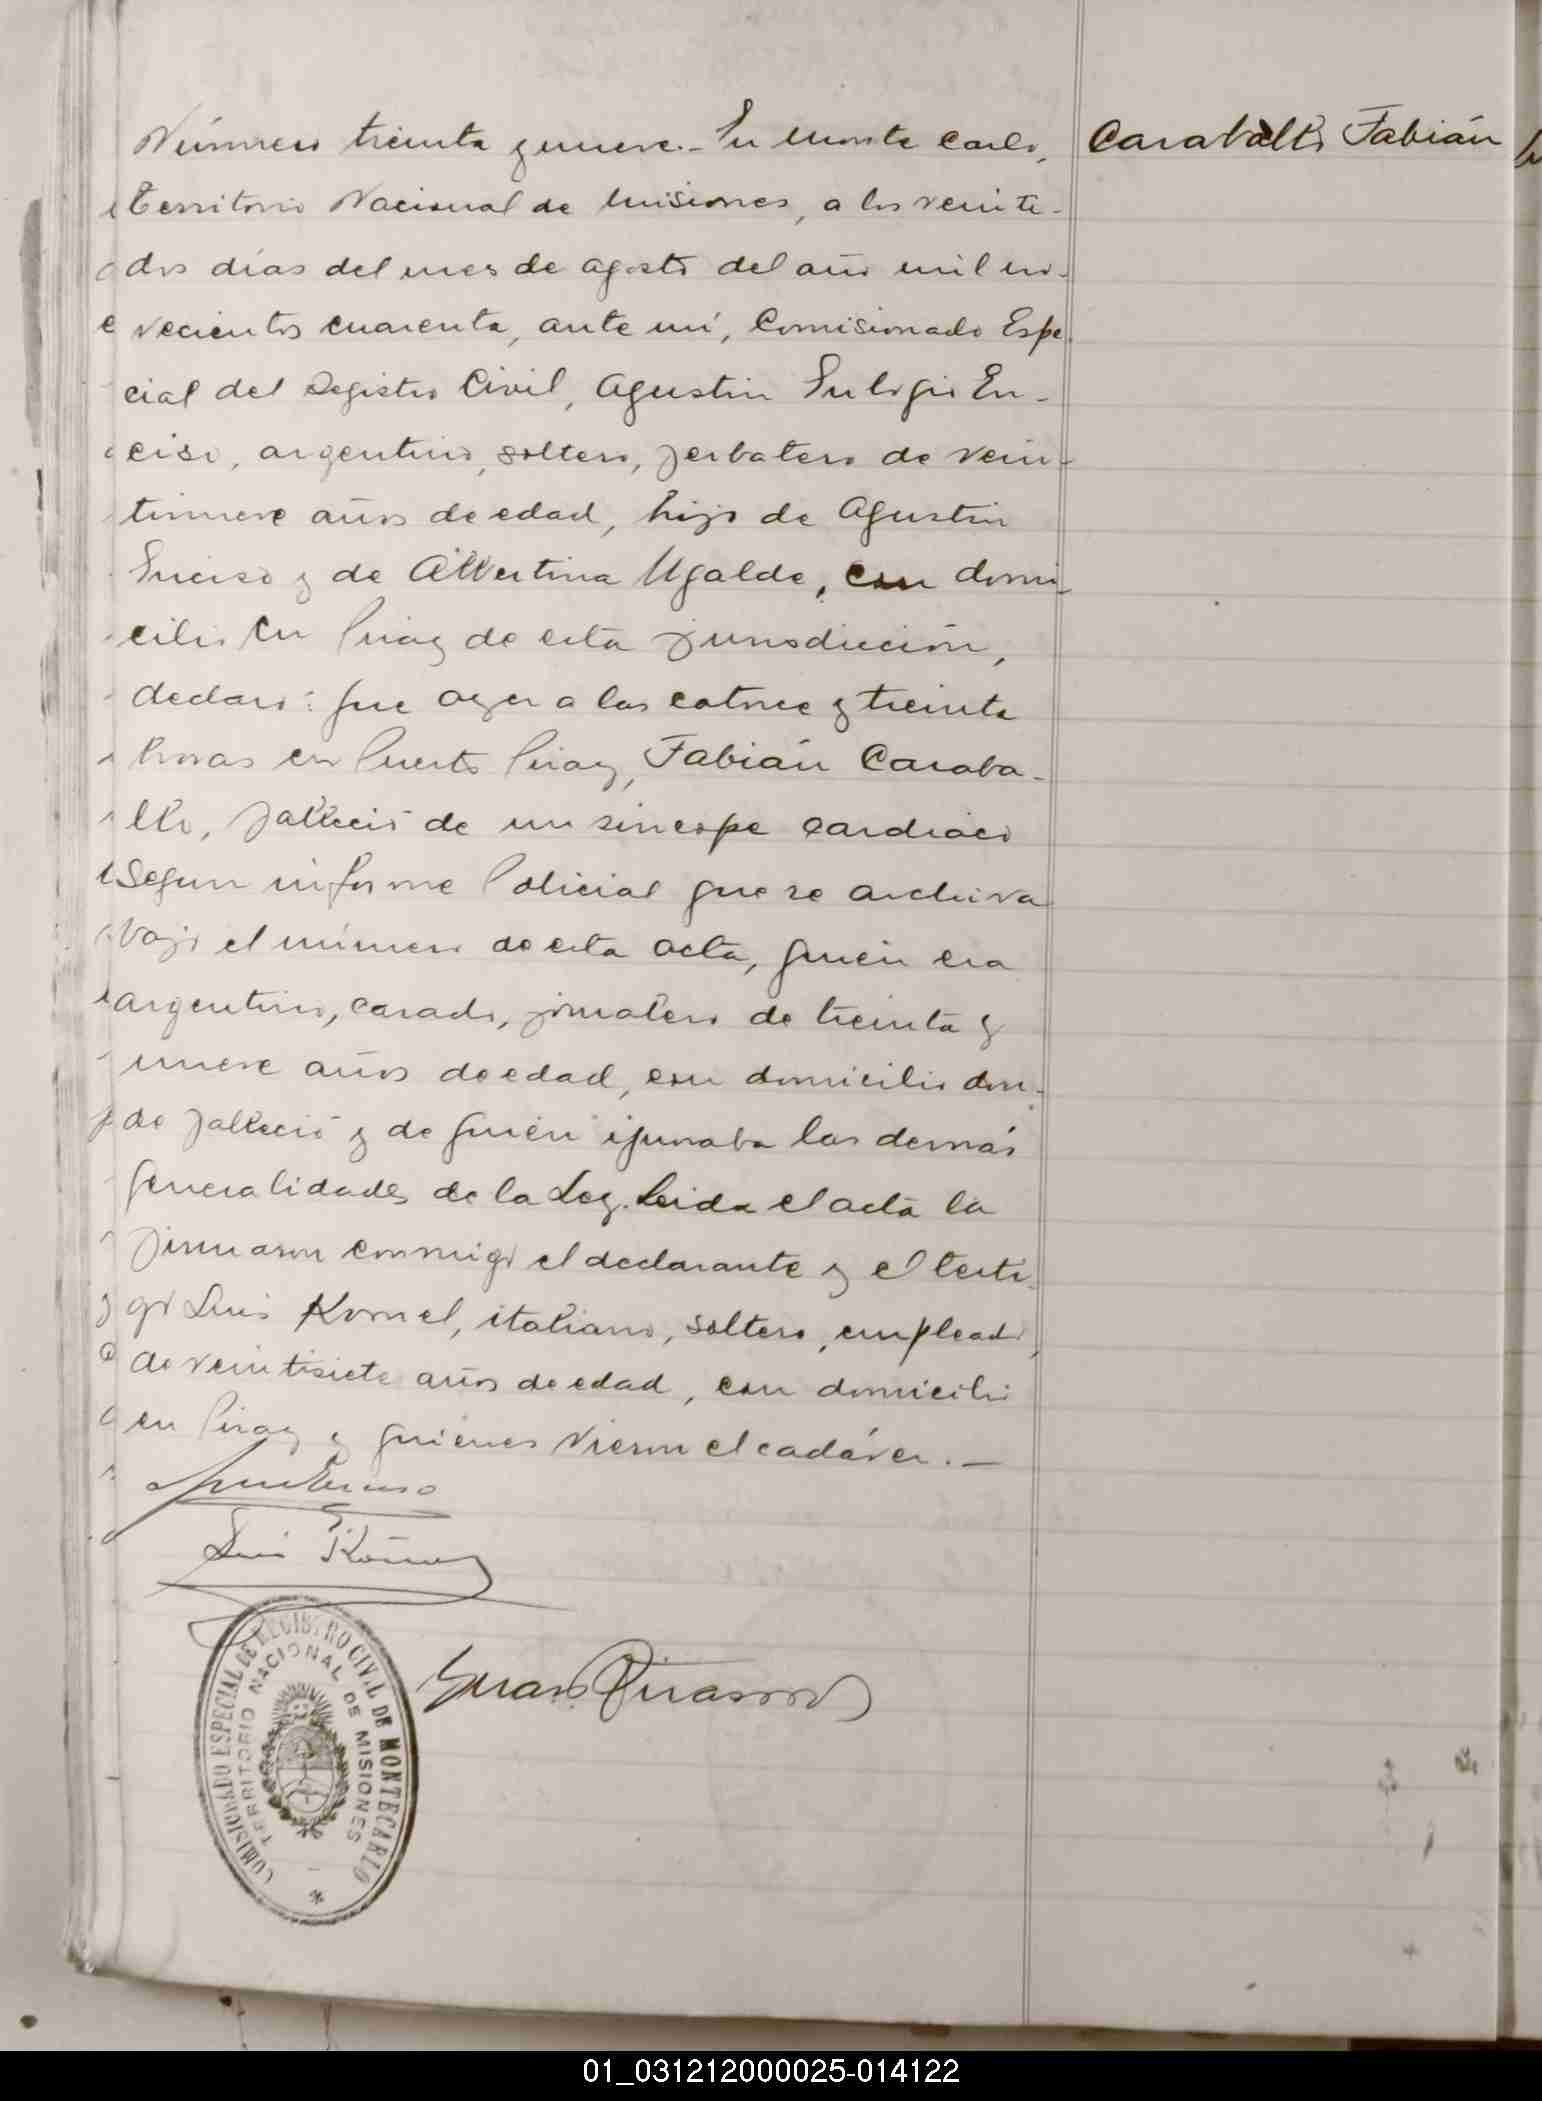 Número treinta y nueve.- En Monte Carlo,
Territorio Nacional de Misiones, a los veinte-
dos días del mes de agosto del año mil no-
vecientos cuarenta, ante mí, Comisionado Espe-
cial del Registro Civil, Agustin Eulogio En-
ciso, argentino, soltero, yerbatero de vein-
tinueve años de edad, hijo de Agustin
Enciso y de Albertina Ugalde, con domi-
cilio en Piray de esta jurisdicción,
declaró: que ayer a las catorce y treinta
horas en Puerto Piray, Fabián Caraba-
llo, falleció de un sincope cardiaco
segun informe Policial que se archiva
bajo el número de esta acta, quién era
argentino, casado, jornalero de treinta y
nueve años de edad, con domicilio don-
de falleció y de quién ignoraba las demás
generalidades de la Ley. Leida el acta la
firmaron conmigo el declarante y el testi-
go Luis Komel, italiano, soltero, empleado,
de veintisiete años de edad, con domicilio
en Piray y quiénes vieron el cadáver.-
Caraballo Fabián
Luis
COMISIONADO ESPECIAL DE REGISTRO CIVIL DE MONTECARLO
TERRITORIO NACIONAL DE MISIONES
01_031212000025-014122